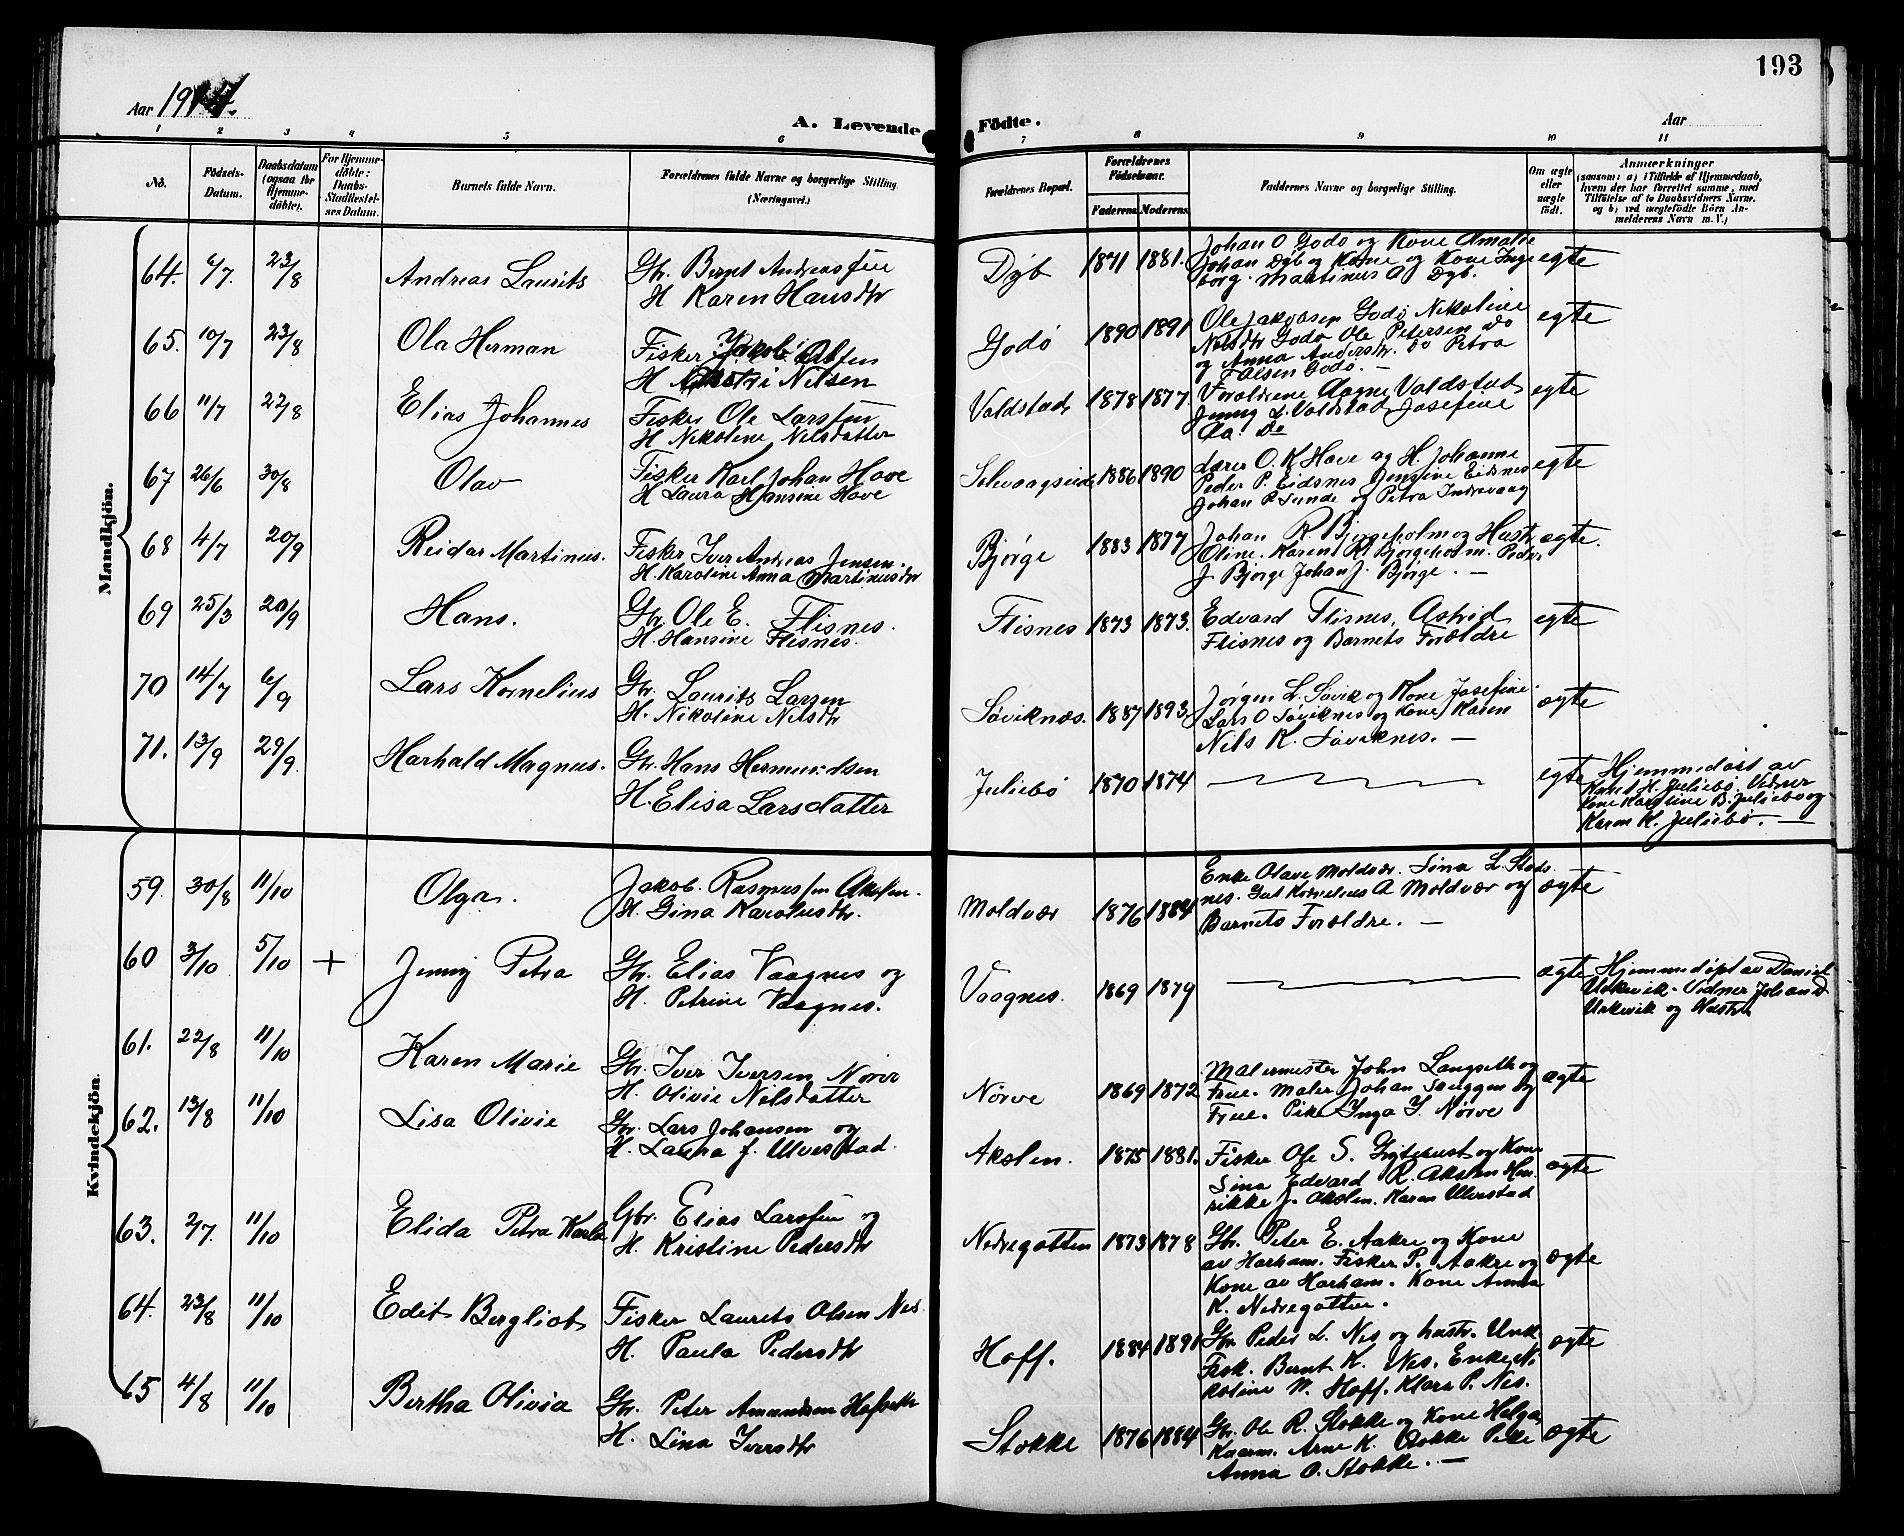 193
Aar 1914.
A. Levende Födte.
Aar
1 2 3 4 5 6 7 8 9 10 11
No.
Födsels-Datum.
Daabsdatum (ogsaa for Hjemmedöbte).
For Hjemmedöbte: Daabs-Stadfæstelses Datum.
Barnets fulde Navn.
Forældrenes fulde Navne og borgerlige Stilling (Næringsvei.)
Forældrenes Bopæl.
Forældrenes Födselsaar.
Faderens. Moderens.
Faddernes Navne og borgerlige Stilling.
Om ægte eller uægte födt.
Anmærkninger
(saasom: a) i Tilfælde af Hjemmedaab,
hvem der har forrettet samme, med
Tilföielse af to Daabsvidners Navne.
og b) ved uægtefödte Börn Anmelderens Navn m. V.)
Mandkjön.
64. 6/7. 23/8 Andreas Laurits
Gbr. Bernt Andreassen
H Karen Hansdtr
Dyb 1871 1881.
Johan O Godø og Kone Amalie
Johan Dyb og Kone og Kone Inge
borg. Martinus A Dyb.
egte
65. 10/7 23/8 Ola Herman
Fisker Jakob Olsen
H Nilsen
Godø 1890 1891
Ole Jakobsen Godø Nikoline
Nilsdtr Godø Ole Petersen do
og Anna Andersdtr. do Petra
Olsen Godø. —
egte
66 11/7 22/8 Elias Johannes
Fisker Ole Larssen
H Nikoline Nilsdatter
Valdstad 1878 1877
Foraldrene Aagne Valdstad
Jenny L. Valdstad Josefine
Aa. Do
egte
67 26/6 30/8 Olav
Fisker Karl Johan Hove
H Laura Hansine Hove
1886 1890
Lærer O. K Hove og H. Johanne
Peder P. Eidsnes Jensine Eidsnes
Johan P. Sunde og Petra Indrevaag
egte
68 4/7 20/9 Reidar Martinus.
Fisker Iver Andreas Jensen.
H. Karoline Anna Martinusdtr
Bjørge 1883 1877
Johan R Bjørgeholm og Hustr
Oline. Karen R. Bjørgeholm. Peder
J. Bjørge Johan J. Bjørge. —
ægte.
69 25/3 20/9 Hans.
Gbr. Ole E. Flisnes.
H. Hansine Flisnes.
Flisnes 1873 1873.
Edvard Flisnes, Astrid
Flisnes og Barnets Forældre
egte
70 14/7 6/9 Lars Kornelius
Gbr. Laurits Larsen
H. Nikoline Nilsdtr
Søviknæs. 1887 1893.
Jørgen L. Søvik og Kone Josefine.
Lars O Søviknes og Kone Karen
Nils K. Søviknes. —
ægte
71. 13/9 29/9. Harhald Magnus.
Gbr. Hans Hermundsen
H. Elisa Larsdatter
Juliebø 1870 1874
egte
Hjemmedøbt av
H. Juliebø. Vidner
Kone Karoline B. Juliebø og
Karen K. Juliebø. —
Kvindekjön.
59. 30/8 11/10 Olga.
Jakob. Rasmussen Akslen.
H. Gina Karolusdtr.
Moldvær 1876 1884
Enke Olave Moldvær. Sina L. Stads
nes. Gut Kornelius A Moldvær og
Barnets Forældre. —
ægte
60 3/10 5/10 + Jenny Petra
Gbr. Elias Vaagnes og
H. Petrine Vaagnes.
Vaagnes. 1869 1879
ægte
Hjemmedøpt av Daniel
Urkevik. Vidner Johan D
Urkevik og Hustru
61. 22/8 11/10 Karen Marie
Gbr. Iver Iversen Nørve
H. Olivie Nilsdatter
Nørve 1869 1872
Malermester John Langseth og
Frue. Maler Johan og
Frue. Pike Inga I. Nørve
ægte
62. 13/8 11/10 Lisa Olivie
Gbr. Lars Johansen og
H. Laura J. Ulvestad.
Akslen. 1875 1881.
Fisker Ole S. og Kone
Sina Edvard R. Akslen Hen
rikke J. Akslen. Karen Ulvestad
ægte
63. 2/7. 11/10 Elida Petra Karla
Gbr. Elias Larssen og
H. Kristine Pedersdtr
Nedregotten 1873 1878
Gbr. Peter E. Aakre og Kone
av Harham. Fisker P. Aakre og
Kone av Harham. Kone Anna
K. Nedregotten.
ægte
64. 23/8 11/10 Edit Bergliot
Fisker Laurets Olsen Nes.
H. Paula Pedersdtr
Hoff. 1884 1891
Gbr. Peder L. Nes og hustr. Unk
Fisk. Bernt K. Nes. Enke Ni
koline N. Hoff. Klara P. Nes.
ægte
65 4/8 11/10 Bertha Olivia
Gbr. Peter Amundsen
H. Lina Iversdtr
Stokke 1876 1884
Gbr. Ole R. Stokke og Kone Helga,
Kaarm. Arne K. Stokke Pike
Anna O. Stokke. —
ægte